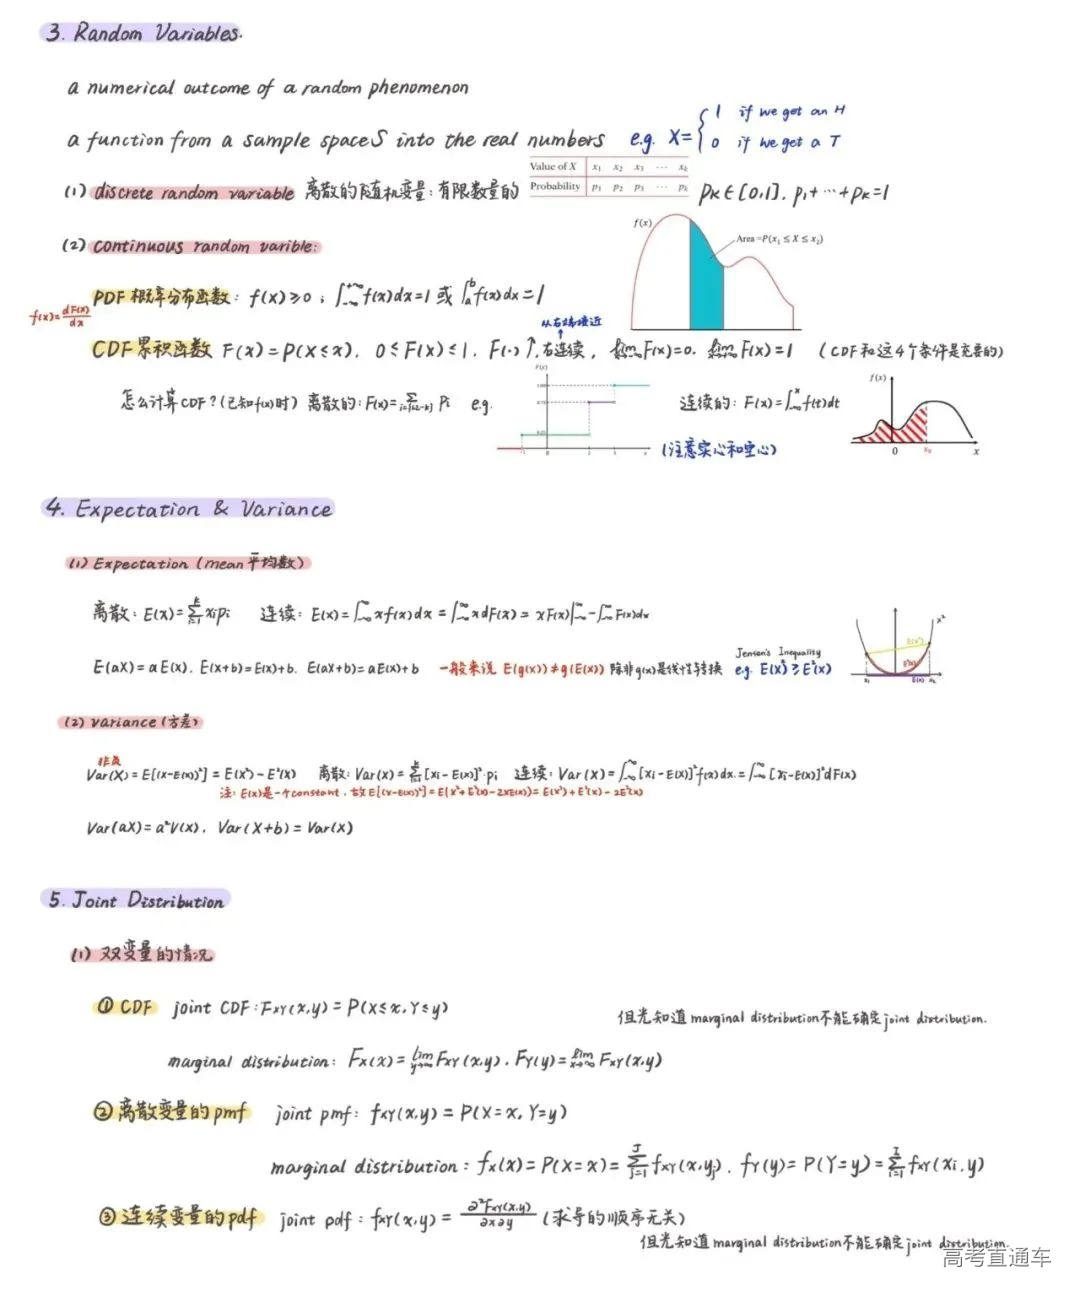 3. Random Variables.
a numerical outcome of a random phenomenon
a function from a sample space S into the real numbers e.g. X={ 1 if we get an H
0 if we get a T
Value of X x₁ x₂ x₃ ⋯ xₖ
Probability p₁ p₂ p₃ ⋯ pₖ
(1) discrete random variable 离散的随机变量:有限数量的 Pₖ∈[0,1]. p₁+⋯+pₖ=1
f(x)
Area =P(x₁ ≤ X ≤ x₂)
(2) continuous random varible:
PDF 概率分布函数: f(x)≥0 ; ∫₋∞⁺∞ f(x)dx=1 或 ∫ₐᵇ f(x)dx=1
f(x)=dF(x)/dx
从右端接近
CDF 累积函数 F(x)=P(X≤x). 0≤F(x)≤1. F(·)↑,右连续, lim F(x)=0. lim F(x)=1 (CDF和这4个条件是充要的)
怎么计算CDF?(已知f(x)时) 离散的: F(x)=Σ pᵢ e.g.
F(x)
连续的: F(x)=∫₋∞ˣ f(t)dt
f(x)
0 x₀ x
(注意实心和空心)
4. Expectation & Variance
(1) Expectation (mean 平均数)
离散: E(x)=Σᵢ₌₁ᵏ xᵢpᵢ 连续: E(x)=∫₋∞^∞ xf(x)dx=∫₋∞^∞ xdF(x)= xF(x)|₋∞^∞-∫₋∞^∞ F(x)dx
x²
E(aX)=aE(x). E(x+b)=E(x)+b. E(ax+b)=aE(x)+b 一般来说 E(g(x))≠g(E(x)) 除非g(x)是线性转换
Jensen's Inequality
e.g. E(X²)≥E²(x)
E(x²)
E²(x)
x₁ E(x) x₂
(2) Variance (方差)
非负
Var(X)=E[(X-E(x))²]=E(X²)-E²(X) 离散: Var(x)=Σᵢ₌₁ᵏ[xᵢ-E(x)]²·pᵢ 连续: Var(x)=∫₋∞^∞[xᵢ-E(x)]²f(x)dx.=∫₋∞^∞[xᵢ-E(x)]²dF(x)
注: E(x)是一个constant, 故E[(x-E(x))²]=E(x²+E²(x)-2xE(x))=E(x²)+E²(x)-2E²(x)
Var(aX)=a²V(x). Var(X+b)=Var(x)
5. Joint Distribution
(1) 双变量的情况
① CDF joint CDF: F_XY(x,y)=P(X≤x, Y≤y)
但光知道marginal distribution不能确定joint distribution.
marginal distribution: F_X(x)=lim y→∞ F_XY(x,y). F_Y(y)=lim x→∞ F_XY(x,y)
② 离散变量的pmf joint pmf: f_XY(x,y)=P(X=x, Y=y)
marginal distribution: f_X(x)=P(X=x)=Σⱼ₌₁ᴶ f_XY(x,yⱼ). f_Y(y)=P(Y=y)=Σᵢ₌₁ᴵ f_XY(xᵢ,y)
③ 连续变量的pdf joint pdf: f_XY(x,y)=∂²F_XY(x,y)/∂x∂y (求导的顺序无关)
但光知道marginal distribution不能确定joint distribution.
高考直通车